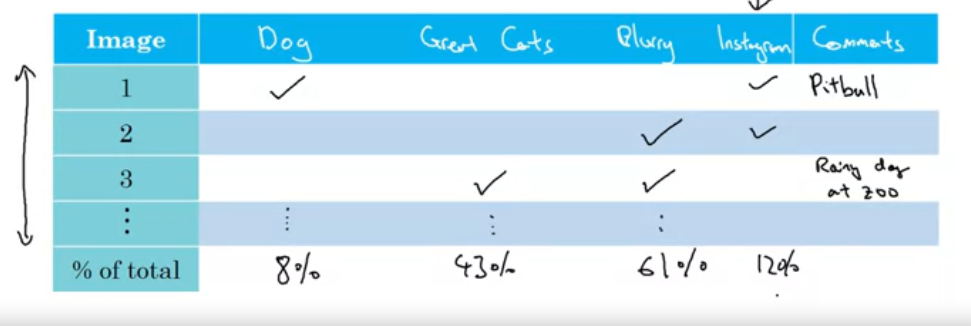 Image Dog Great Cats Blurry Instagram Comments
1 ✓ ✓ Pitbull
2 ✓ ✓
3 ✓ ✓ Rainy day
at zoo
⋮ ⋮ ⋮ ⋮
% of total 8% 43% 61% 12%